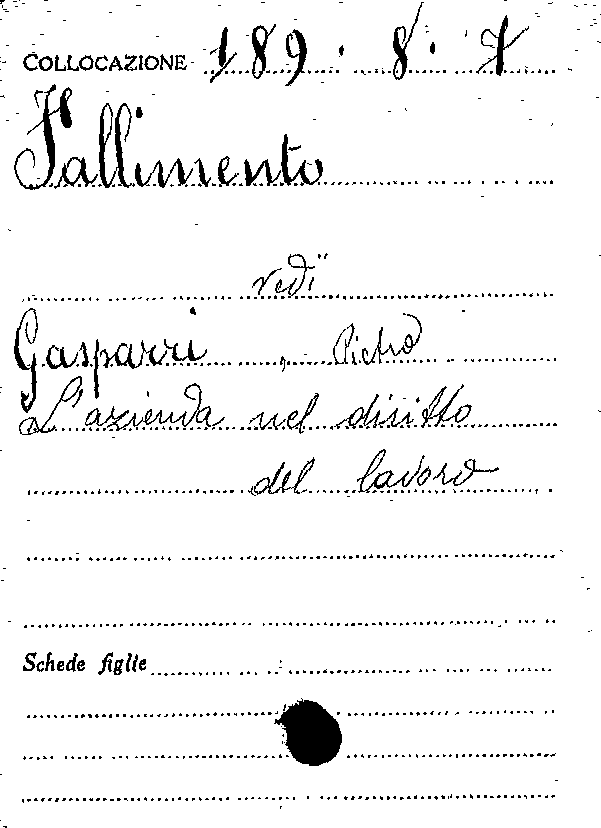 COLLOCAZIONE 189.8.7
Fallimento
vedi
Gasparri, Pietro
L'azienda nel diritto
del lavoro
Schede figlie